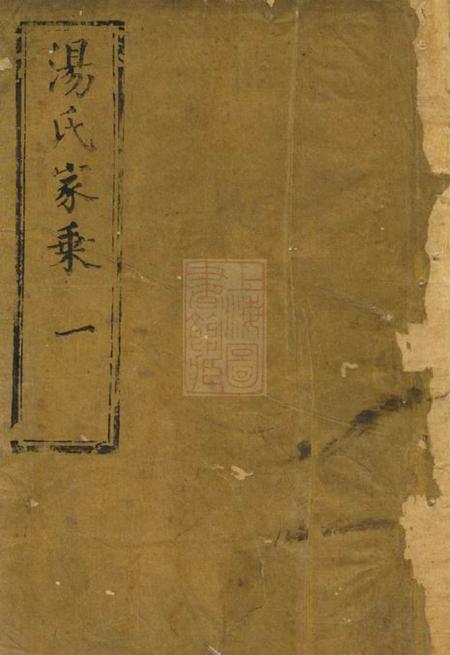 湯氏家乗 一
上海圖
書館藏